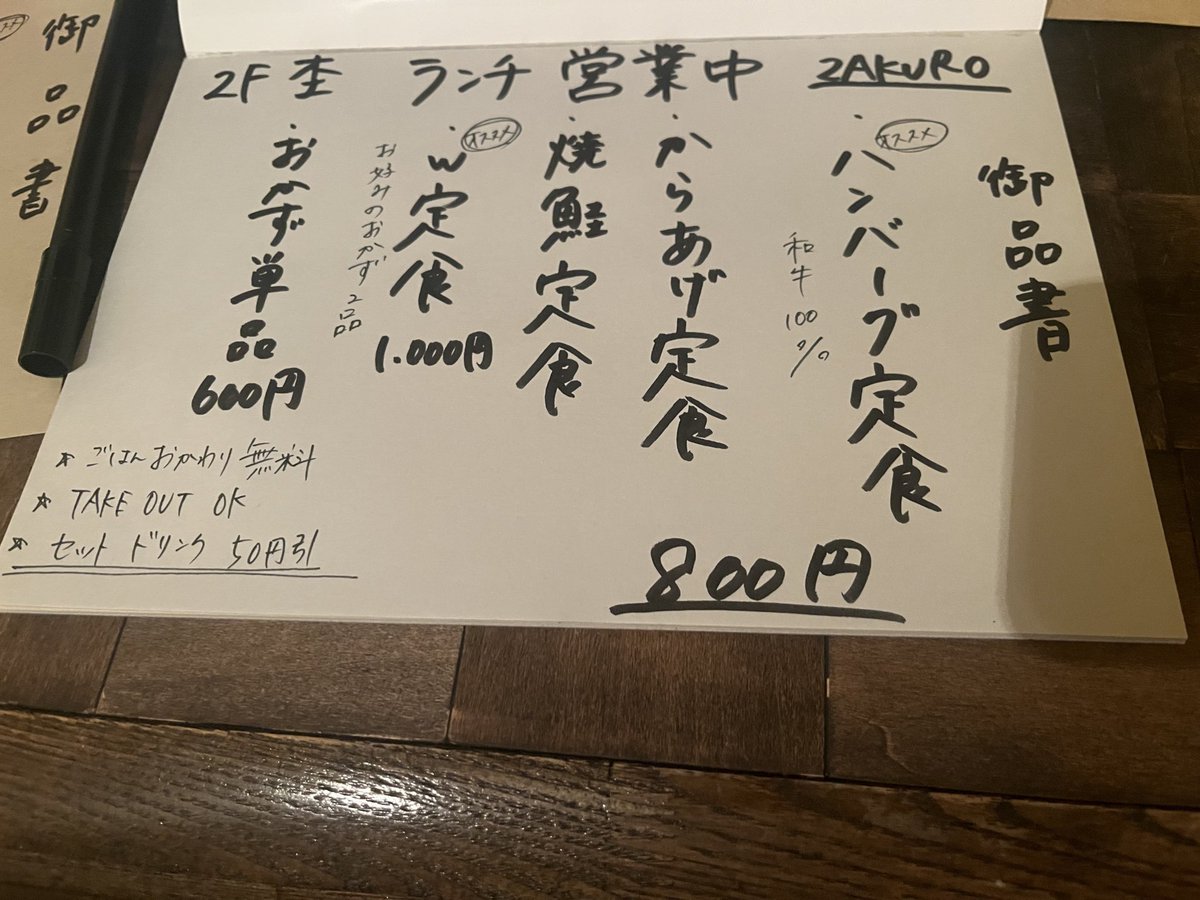 2F 杢 ランチ 営業中 ZAKURO
御品書
・ハンバーグ定食
オススメ
和牛100%
・からあげ定食
・焼鮭定食
800円
・W定食 1.000円
オススメ
お好みのおかず2品
・おかず単品 600円
* ごはんおかわり無料
* TAKE OUT OK
* セットドリンク 50円引
御品書